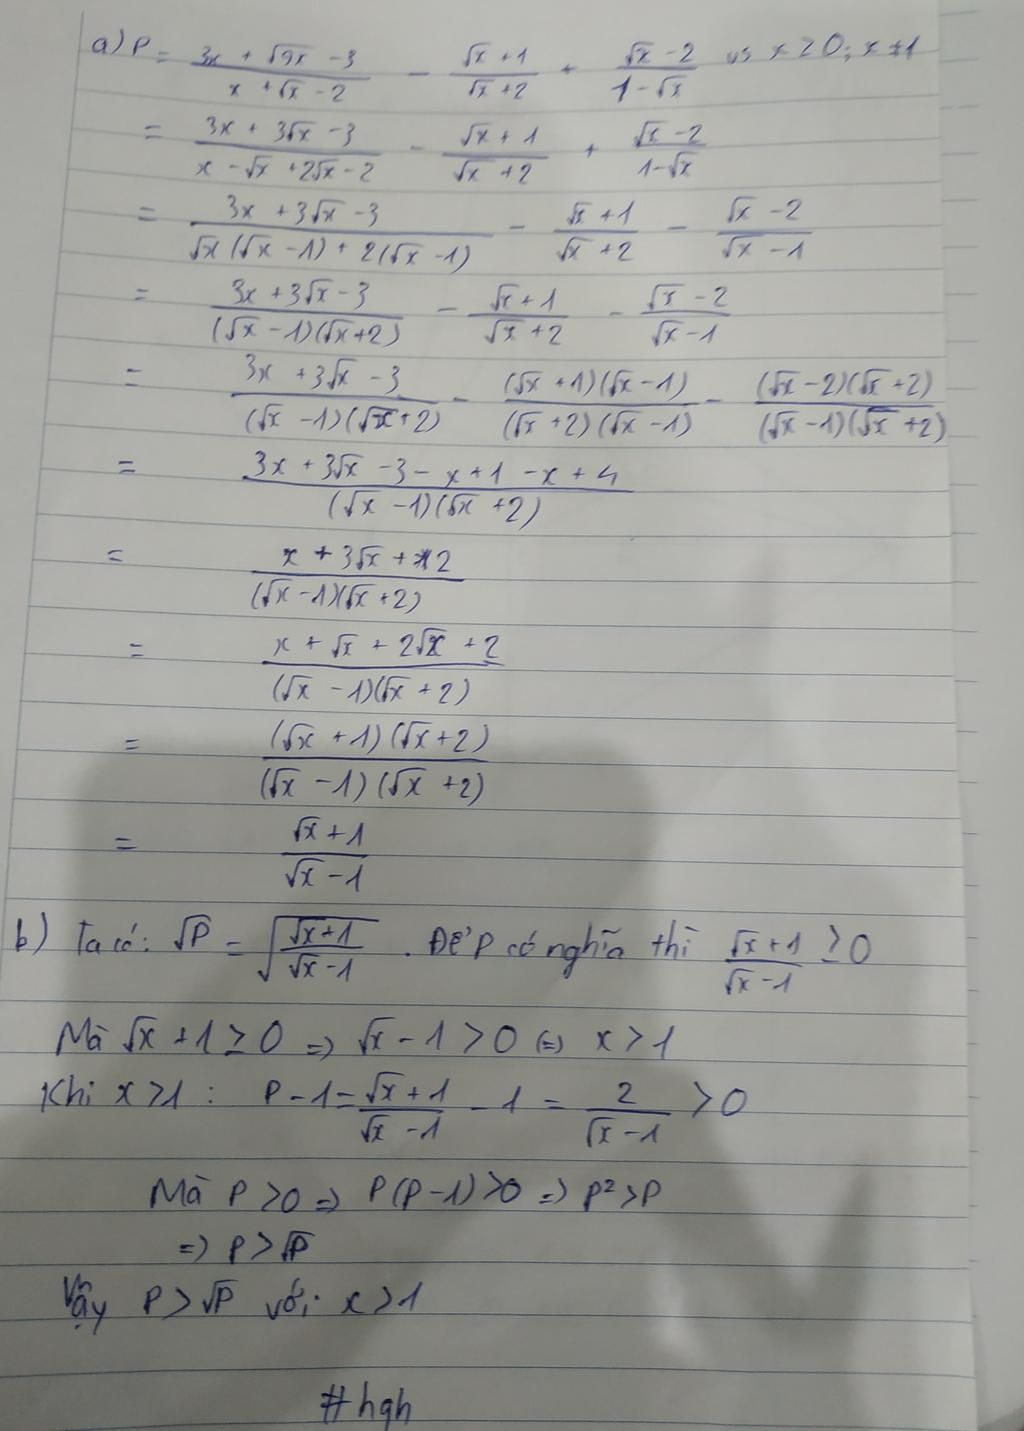 a) P = (3x + √9x - 3)/(x + √x - 2) - (√x + 1)/(√x + 2) + (√x - 2)/(1 - √x) vs x ≥ 0; x ≠ 1
= (3x + 3√x - 3)/(x - √x + 2√x - 2) - (√x + 1)/(√x + 2) + (√x - 2)/(1 - √x)
= (3x + 3√x - 3)/(√x(√x - 1) + 2(√x - 1)) - (√x + 1)/(√x + 2) - (√x - 2)/(√x - 1)
= (3x + 3√x - 3)/((√x - 1)(√x + 2)) - (√x + 1)/(√x + 2) - (√x - 2)/(√x - 1)
= (3x + 3√x - 3)/((√x - 1)(√x + 2)) - ((√x + 1)(√x - 1))/((√x + 2)(√x - 1)) - ((√x - 2)(√x + 2))/((√x - 1)(√x + 2))
= (3x + 3√x - 3 - x + 1 - x + 4)/((√x - 1)(√x + 2))
= (x + 3√x + 2)/((√x - 1)(√x + 2))
= (x + √x + 2√x + 2)/((√x - 1)(√x + 2))
= ((√x + 1)(√x + 2))/((√x - 1)(√x + 2))
= (√x + 1)/(√x - 1)
b) Ta có: √P = √((√x + 1)/(√x - 1)). Để P có nghĩa thì (√x + 1)/(√x - 1) ≥ 0
Mà √x + 1 ≥ 0 => √x - 1 > 0 (=) x > 1
Khi x > 1: P - 1 = (√x + 1)/(√x - 1) - 1 = 2/(√x - 1) > 0
Mà P > 0 => P(P - 1) > 0 => P² > P
=> P > √P
Vậy P > √P với x > 1
#hgh